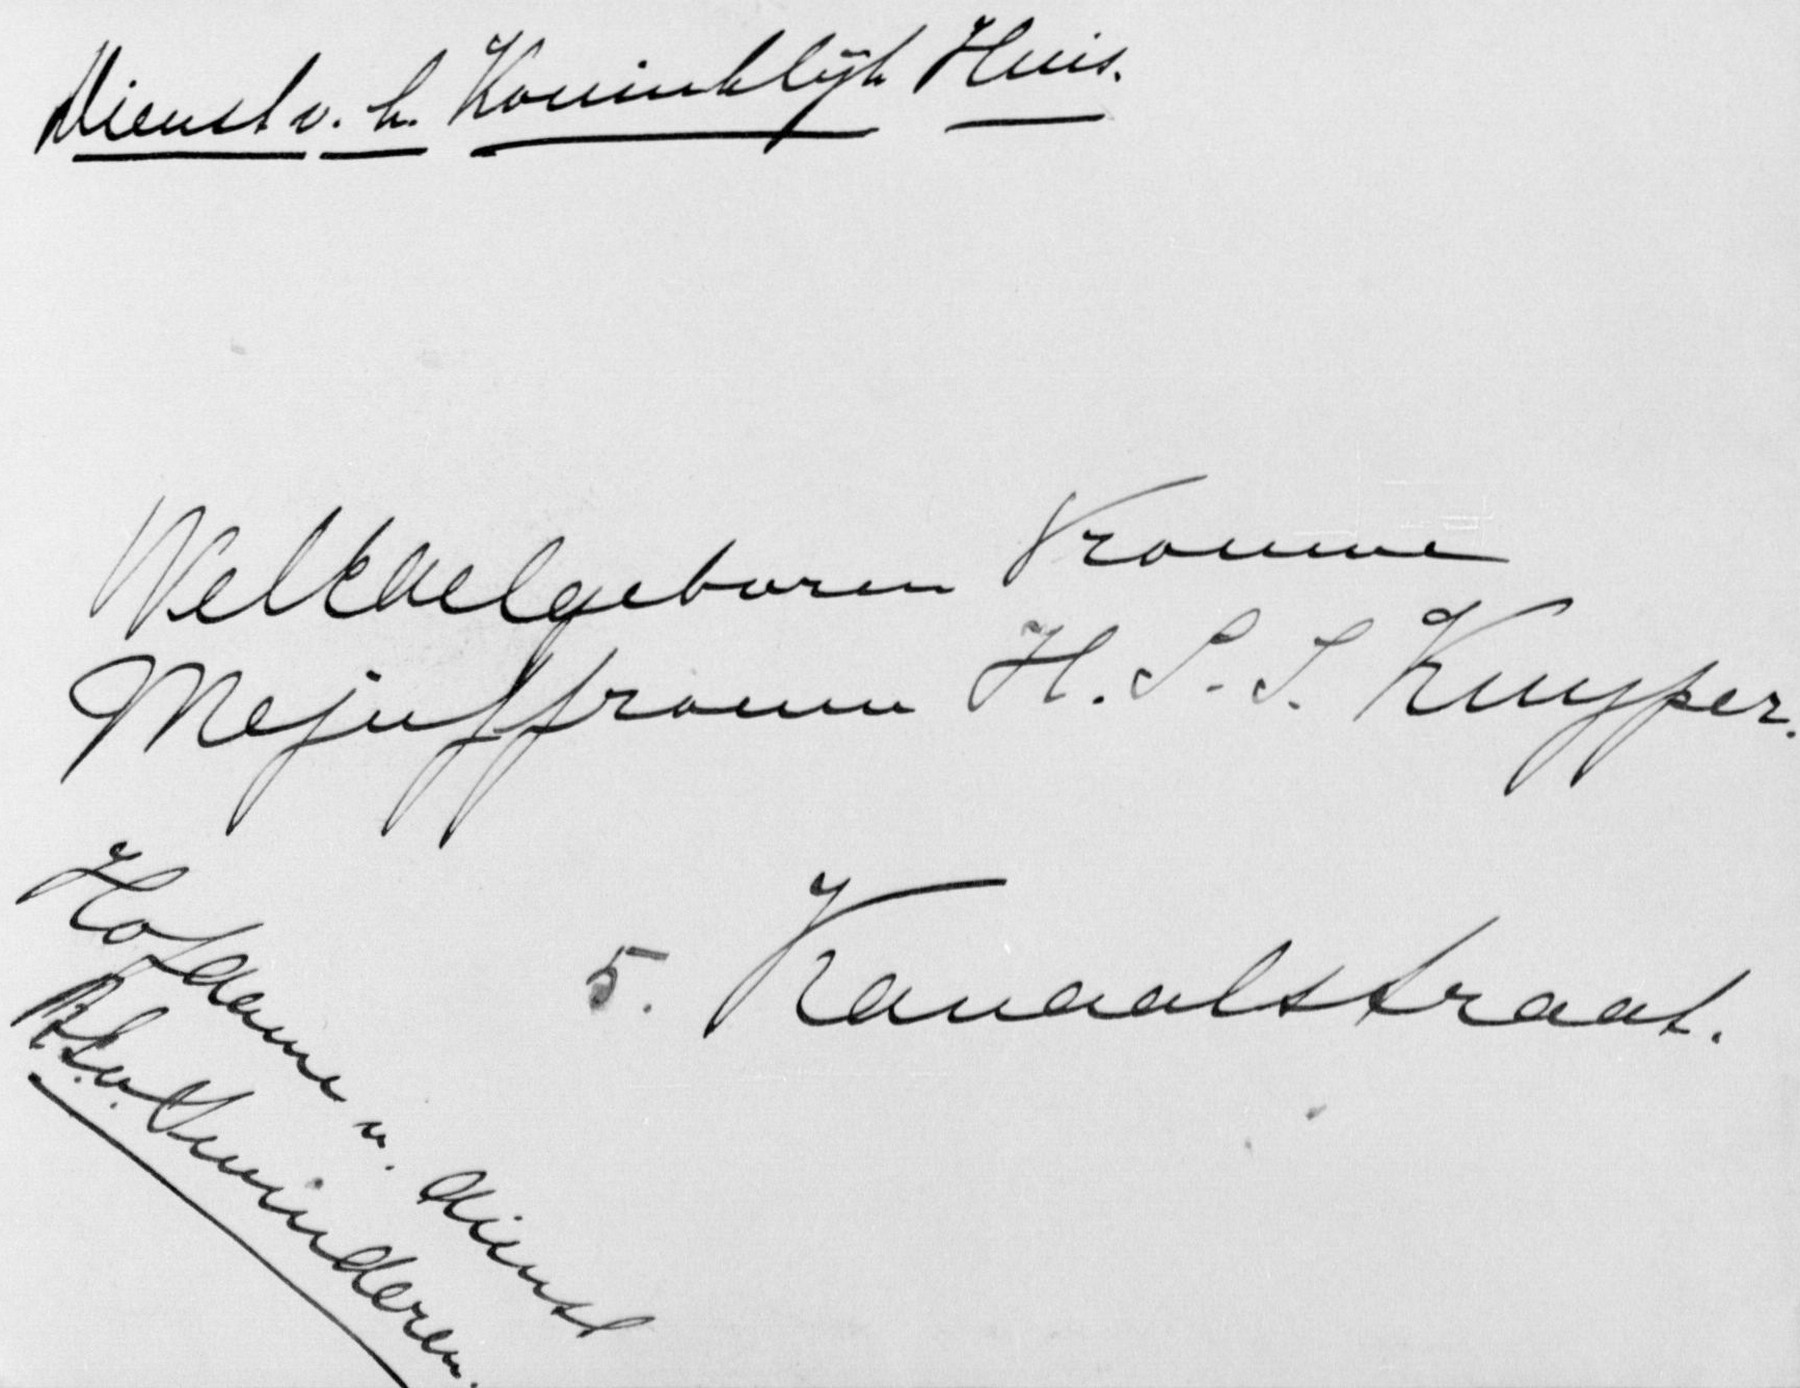 Dienst v. h. Koninklijk Huis.
WelEdelgeboren Vrouwe
Mejuffrouw H. S. S. Kuyper.
5. Kanaalstraat.
Hofdame v. dienst
v. Swinderen.